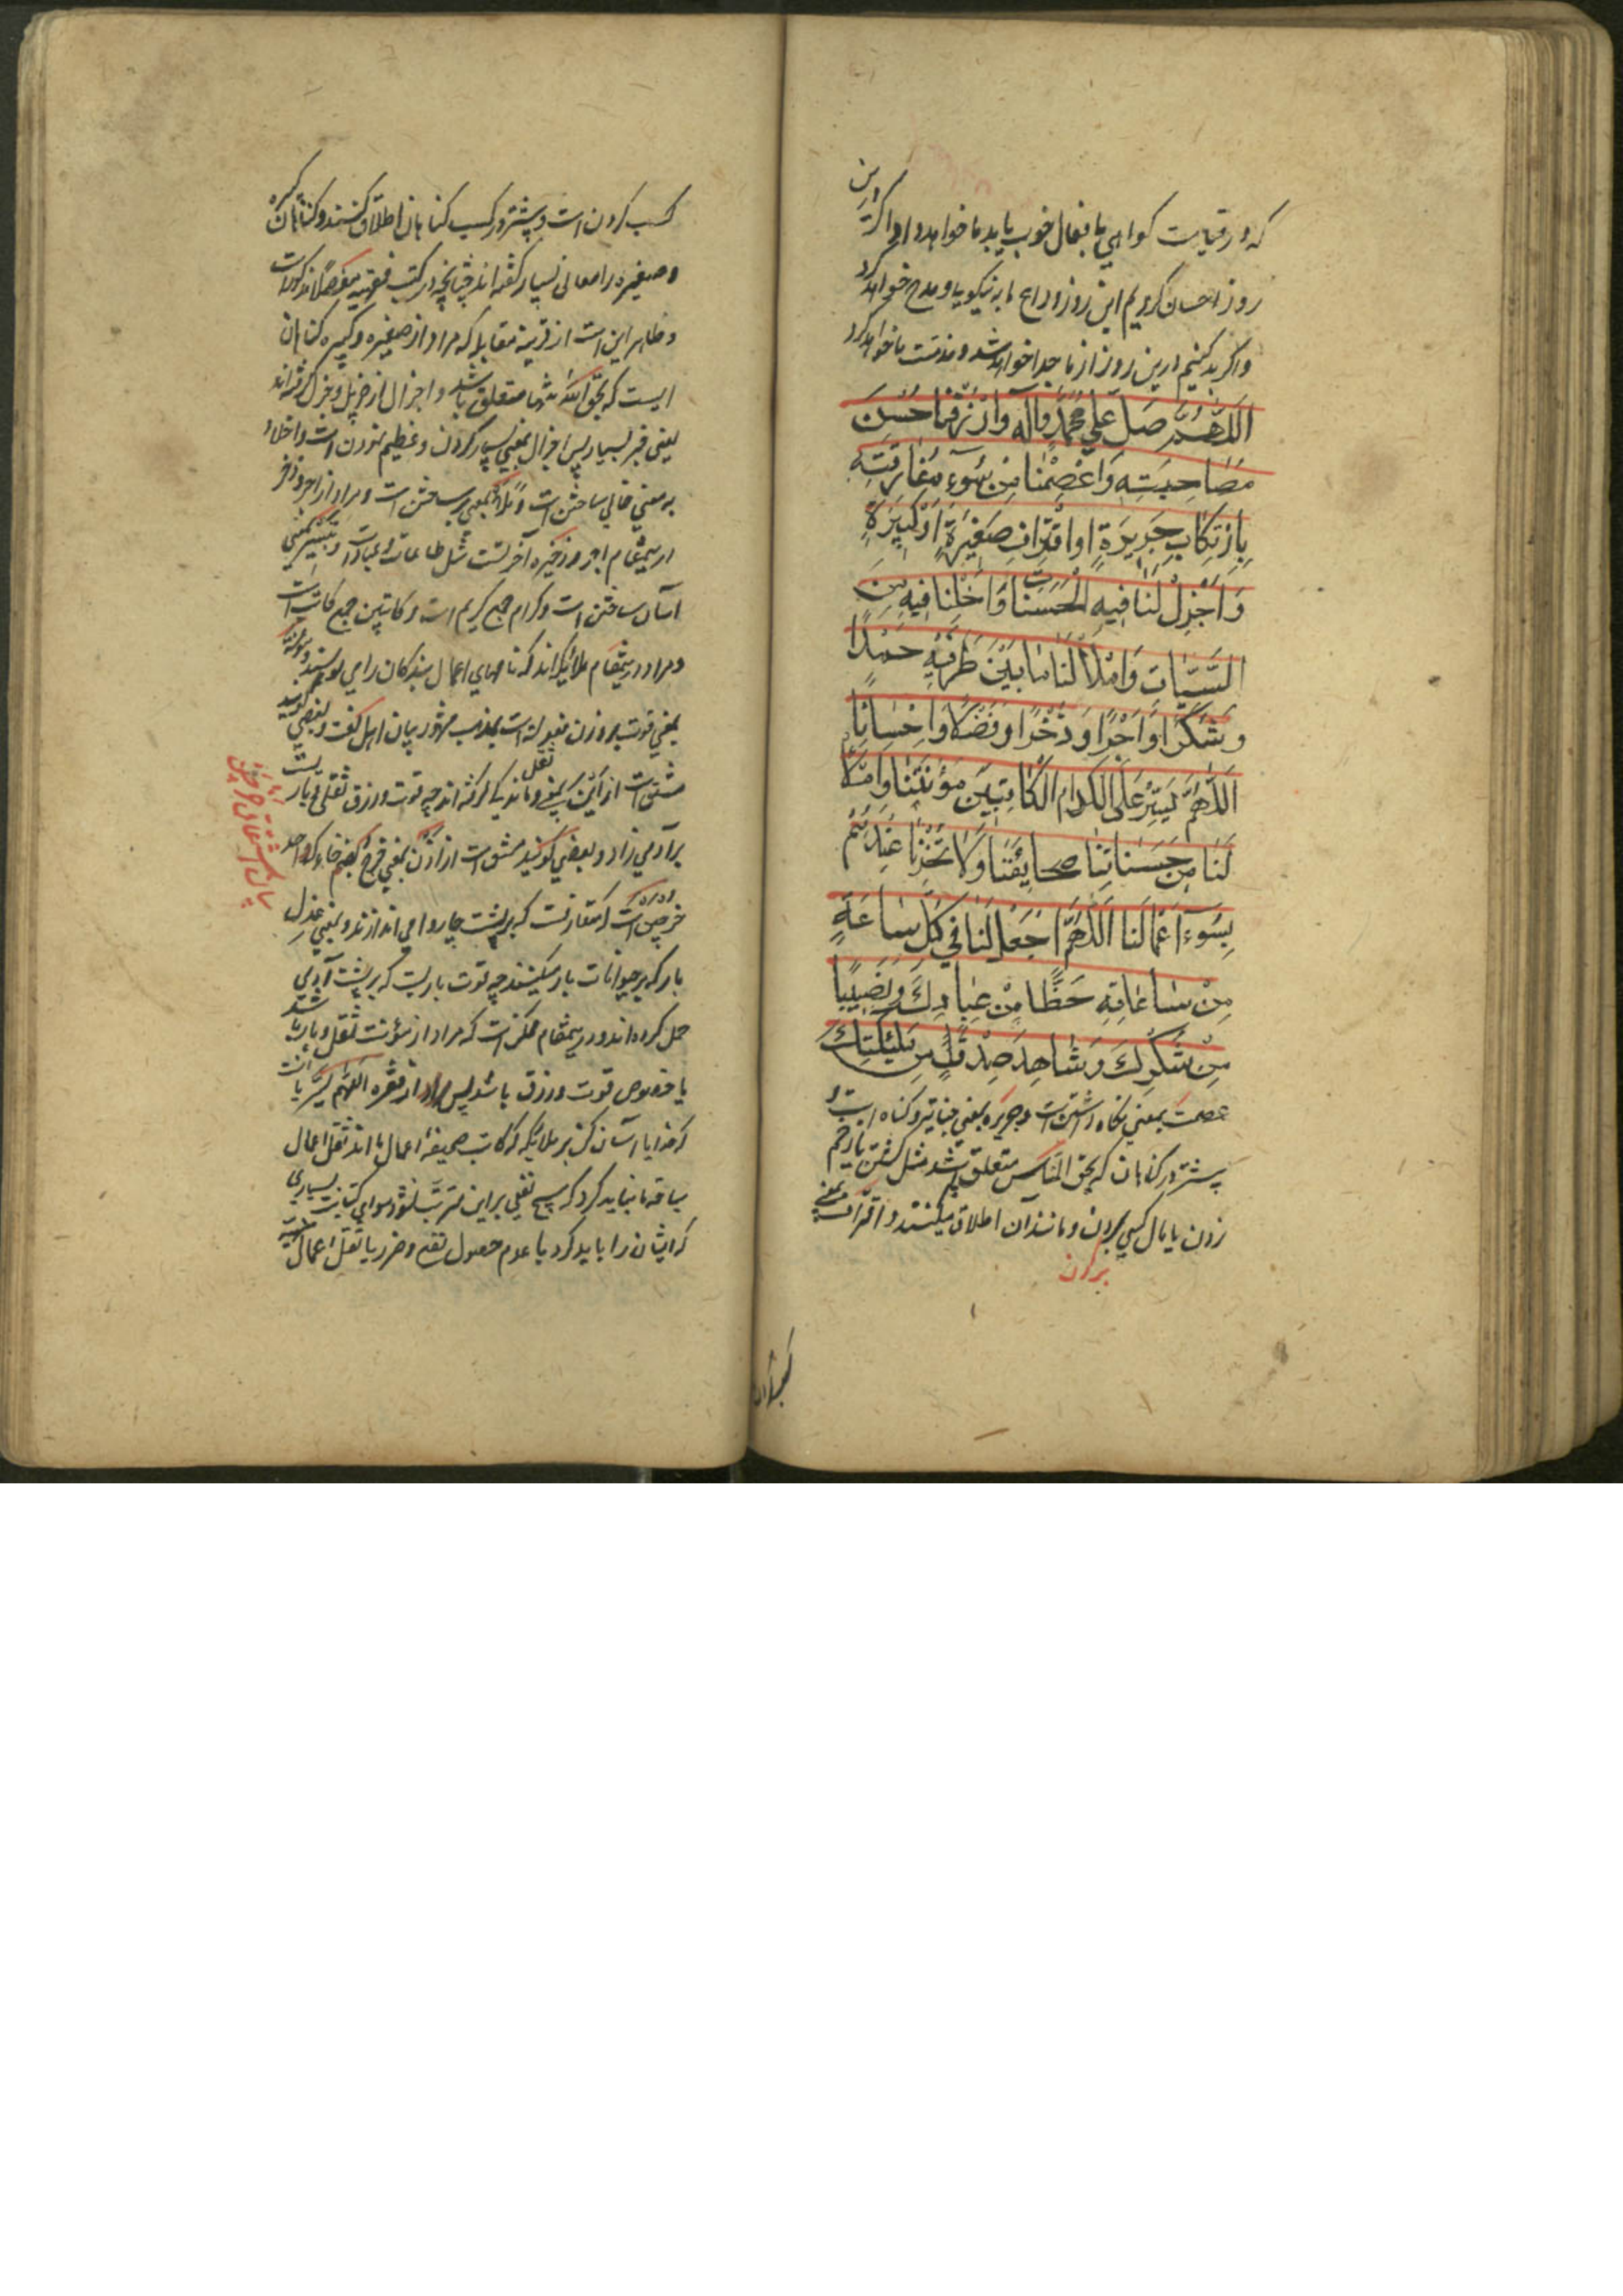 که در قیامت کواهی ما بفعال خوب یا بد ما خواهد داد اکر درین
روز احسان کردیم این روز وداع ما به نیکویی و مدح خواهد کرد
و اکر بد کنیم درین روز از ما جدا خواهد شد و مذمت ما خواهد کرد
اَللّٰهُمَّ صَلِّ عَلٰی مُحَمَّدٍ وَآلِهِ وَارْزُقْنَا حُسْنَ
مُصَاحَبَتِهِ وَاعْصِمْنَا مِنْ سُوۤءِ مُفَارَقَتِهِ
بِارْتِكَابِ جَرِيرَةٍ اَوِ اقْتِرَافِ صَغِيرَةٍ اَوْ كَبِيرَةٍ
وَاَجْزِلْ لَنَا فِيهِ الْحَسَنَاتِ وَاَخْلِنَا فِيهِ مِنَ
السَّيِّئَاتِ وَامْلَأْ لَنَا مَا بَيْنَ طَرَفَيْهِ حَمْدًا
وَشُكْرًا وَاَجْرًا وَذُخْرًا وَفَضْلًا وَاِحْسَانًا
اَللّٰهُمَّ يَسِّرْ عَلَى الْكِرَامِ الْكَاتِبِينَ مَؤُنَتَنَا وَامْلَأْ
لَنَا مِنْ حَسَنَاتِنَا صَحَايِفَنَا وَلَا تُخْزِنَا عِنْدَهُمْ
بِسُوۤءِ اَعْمَالِنَا اَللّٰهُمَّ اجْعَلْ لَنَا فِي كُلِّ سَاعَةٍ
مِنْ سَاعَاتِهِ حَظًّا مِنْ عِبَادِكَ وَنَصِيبًا
مِنْ شُكْرِكَ وَشَاهِدَ صِدْقٍ مِنْ مَلٰئِكَتِكَ
عصمت بمعنی نکاه داشتن است و جریره بمعنی جنایت و کناه است و
پیشتر در کناهان که بحق الناس متعلق باشد مثل کشتن یا زخم
زدن یا مال کسی بردن و مانند آن اطلاق میکنند و اقتراف بمعنی
کسب کردن است و پیشتر در کسب کناهان اطلاق کنند و کناهان کبیره
و صغیره را معانی بسیار کفته اند چنانچه در کتب فقهیه مفصلا مذکور است
و ظاهر این است از قرینه مقابله که مراد از صغیره و کبیره کناهان
ایست که بحق الله تنها متعلق باشد و اجزال از جزیل و جزل کرفته اند
یعنی بسیار پس اجزال بمعنی بسیار کردن و عظیم نمودن است و اخلاء
به معنی خالی ساختن است و ملأ بمعنی پر ساختن است و مراد از اجر و ذخر
درینمقام اجر و ذخیره آخرتست مثل طاعات و عبادات و تیسیر بمعنی
آسان ساختن است و کرام جمع کریم است و کاتبین جمع کاتب است
و مراد درینمقام ملایکه اند که نامهای اعمال بندکان را می نویسند و مؤنة
بمعنی قوت بر وزن فعوله است بمذهب مشهور میان اهل لغت و بعضی کویند
مشتق است از این بمعنی ماندکی کرفته اند چه قوت و رزق ثقلی و باریست
بر آدمی زاد و بعضی کویند مشتق است از اون بمعنی خرج بضم خاء که واحد
خرجین است که متعارفست که بر پشت چاروا می اندازند و بمعنی عدل
بار که بر حیوانات بار میکنند چه قوت باریست که بر پشت آدمی
حمل کرده اند و درینمقام ممکن است که مراد از مؤنت ثقل و بار باشد
یا خصوص قوت و رزق باشد پس مراد از فقره اللهم یسر یا انست
که خدایا آسان کن بر ملایکه که کاتب صحیفه اعمال ما اند ثقل اعمال
که ایشان را باید کرد با عدم حصول نفع و ضرر یا ثقل اعمال